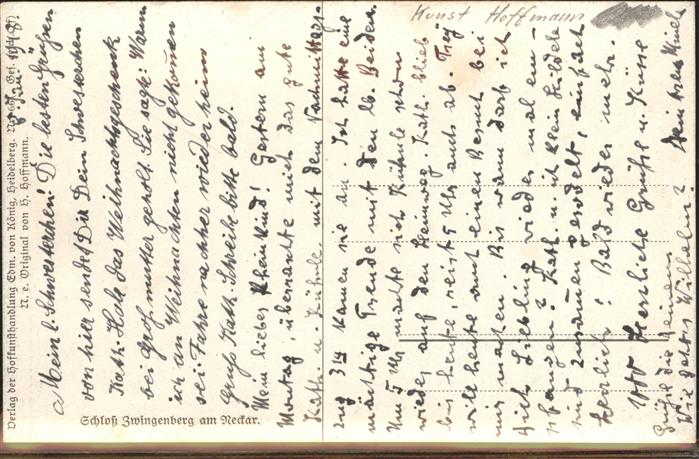 Kunst Hoffmann
Verlag der Hofkunsthandlung Edm. von König, Heidelberg.
N. e. Original von H. Hoffmann.
Schloß Zwingenberg am Neckar.
Mein l. Schwesterchen! Die besten Grüßen
von hier sendet Dir Dein Schwesterchen
Kath. Hab das Weihnachtsgeschenk
bei Großmutter geholt. Sie sagt: Wann
ich an Weihnachten nicht gekommen
sei. Fahre nachher wieder heim
Gruß Kath. Schreibe bitte bald.
Mein liebes Rheinkind! Gestern am
Montag, überraschte mich das gute
Kath. u. Kühnle, mit dem Nachmittag-
zug 3 kamen sie an. Ich hatte eine
mächtige Freude mit den lb. Beiden.
Um 5 Uhr machte sich Kühnle schon
wieder auf den Heimweg. Kath. blieb
bis heute, reist 5 Uhr auch ab. Frey
will heute auch einen Besuch bei
mir machen. Bis wann darf ich
Dich Liebling wieder mal em-
pfangen? Kath. u. ich klein Hilde
sind zusammen, einfach
herrlich! Bald wieder mehr.
1000 Herzliche Grüße u. Küsse
Dein treu Kind
Grüße die